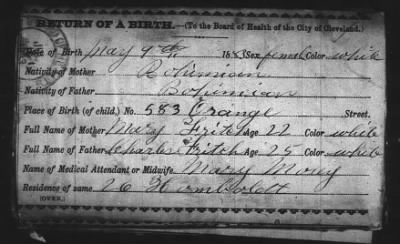 RETURN OF A BIRTH.—(To the Board of Health of the City of Cleveland.)
Date of Birth May 9th 1883 Sex female Color white
Nativity of Mother Bohemian
Nativity of Father Bohemian
Place of Birth (of child.) No. 583 Orange Street.
Full Name of Mother Mary Fritch Age 22 Color white
Full Name of Father Charles Fritch Age 25 Color white
Name of Medical Attendant or Midwife. Mary Morey
Residence of same 26 Humboldt
(OVER.)